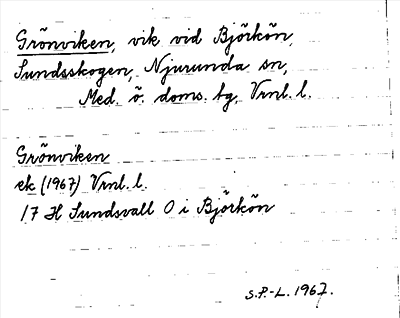 Grönviken, vik vid Björkön,
Sundsskogen, Njurunda sn,
Med. ö. doms. tg, Vrnl. l.
Grönviken
ek (1967) Vrnl. l.
17 H Sundsvall O i Björkön
S.P.-L. 1967.